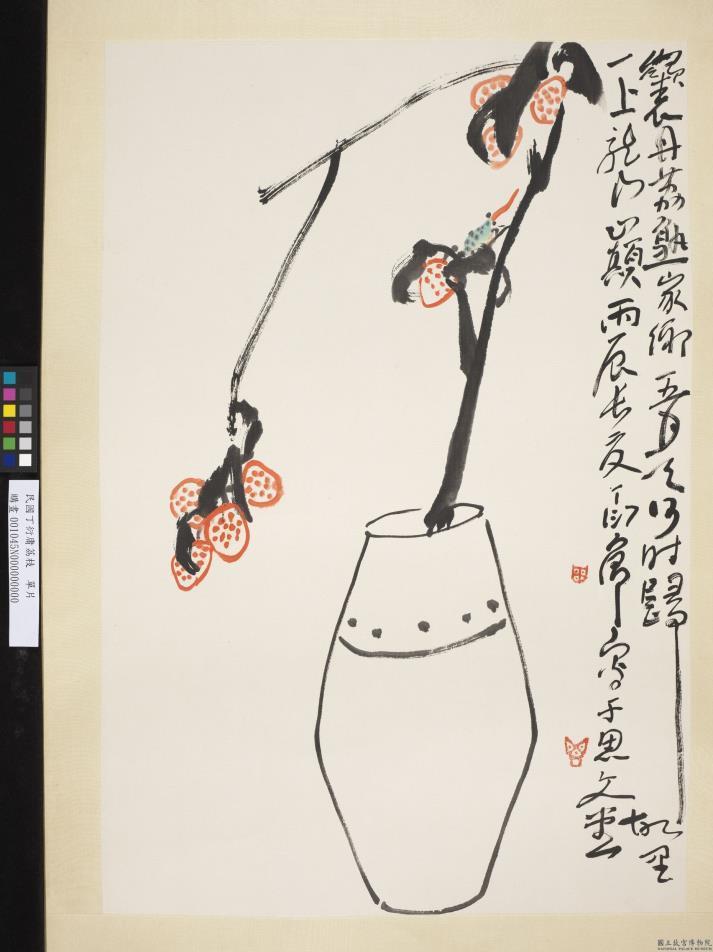 丹荔熟家鄉五月天何時歸故里
一上龍門山巔丙辰長夏丁衍庸寫于思文堂
民國丁衍庸荔枝 單片
購畫 001045N000000000
國立故宮博物院
NATIONAL PALACE MUSEUM